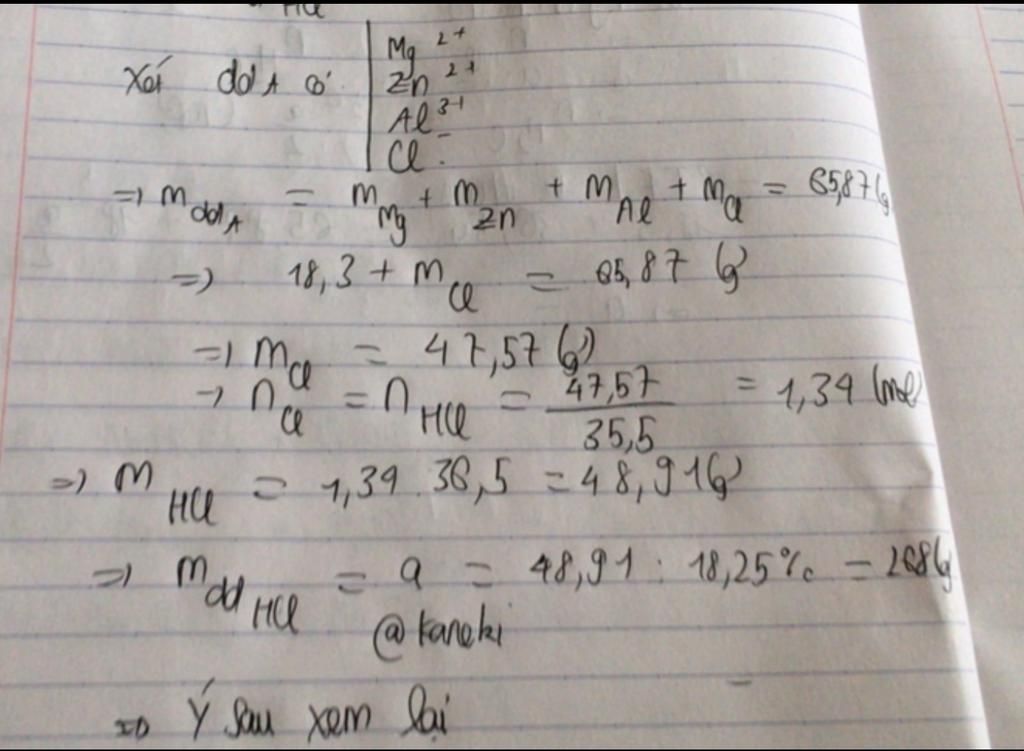 HCl
Mg²⁺
Xét dd A có Zn²⁺
Al³⁺
Cl⁻.
=> m ddA = m Mg + m Zn + m Al + m Cl = 65,87 (g)
=> 18,3 + m Cl = 65,87 (g)
=> m Cl = 47,57 (g)
→ n Cl = n HCl = 47,57 / 35,5 = 1,34 (mol)
=> m HCl = 1,34 . 36,5 = 48,91 (g)
=> m dd HCl = a = 48,91 : 18,25% = 268 (g
@kaneki
=> Ý sau xem lại